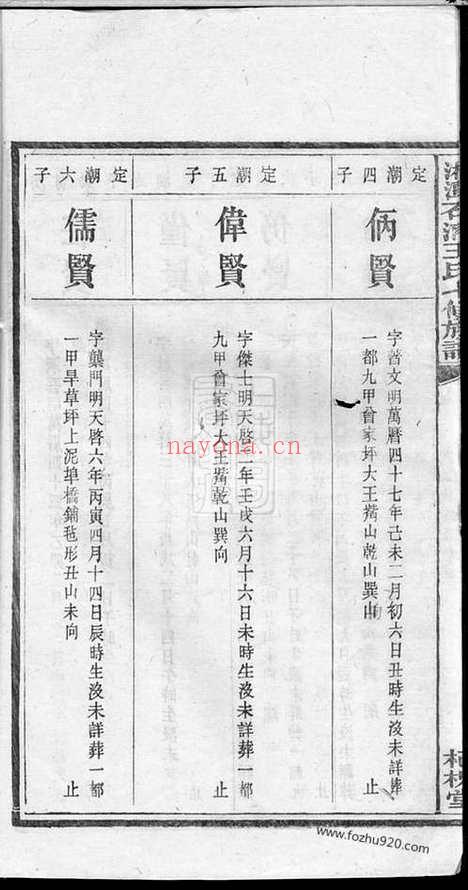 定潮四子
侢賢
字啓文明萬曆四十七年己未二月初六日丑時生沒未詳葬
一都九甲曾家坪大王觜山乾山巽山
止
定潮五子
偉賢
字傑士明天啓二年壬戌六月十六日未時生沒未詳葬一都
九甲曾家坪大王觜乾山巽向
止
定潮六子
儒賢
字龔門明天啓六年丙寅四月十四日辰時生沒未詳葬一都
一甲旱草坪上泥埠橋鋪毡形丑山未向
止
nayona.cn
www.fozhu920.com